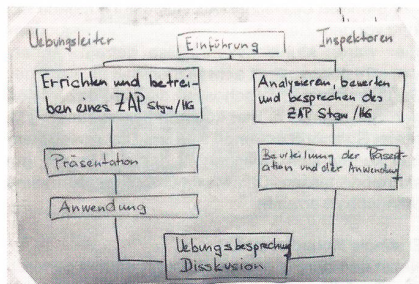 Uebungsleiter
Einführung
Inspektoren
Errichten und betrei-
ben eines ZAP Stgw/HG
Analysieren, bewerten
und besprechen des
ZAP Stgw/HG
Präsentation
Beurteilung der Präsent-
ation und der Anwendung
Anwendung
Uebungsbesprechung
Disskusion